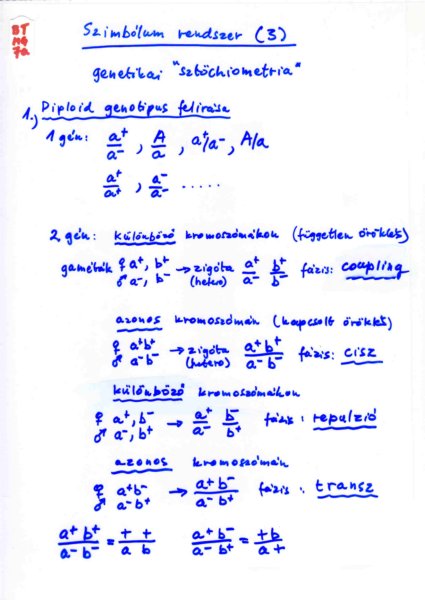 BT
M67
7a
Szimbólum rendszer (3)
genetikai "sztöchiometria"
1.) Diploid genotipus felirása
1 gén: a⁺/a⁻ , A/a , a⁺/a⁻, A/a
a⁺/a⁺ , a⁻/a⁻ .....
2 gén: különböző kromoszómákon (független öröklés)
gaméták ♀ a⁺, b⁺ → zigóta a⁺/a⁻ b⁺/b⁻ fázis: coupling
♂ a⁻, b⁻ (hetero)
azonos kromoszómán (kapcsolt öröklés)
♀ a⁺b⁺ → zigóta a⁺b⁺/a⁻b⁻ fázis: cisz
♂ a⁻b⁻ (hetero)
különböző kromoszómákon
♀ a⁺, b⁻ → a⁺/a⁻ b⁻/b⁺ fázis: repulzió
♂ a⁻, b⁺
azonos kromoszómán
♀ a⁺b⁻ → a⁺b⁻/a⁻b⁺ fázis: transz
♂ a⁻b⁺
a⁺b⁺/a⁻b⁻ = + +/a b a⁺b⁻/a⁻b⁺ = +b/a+